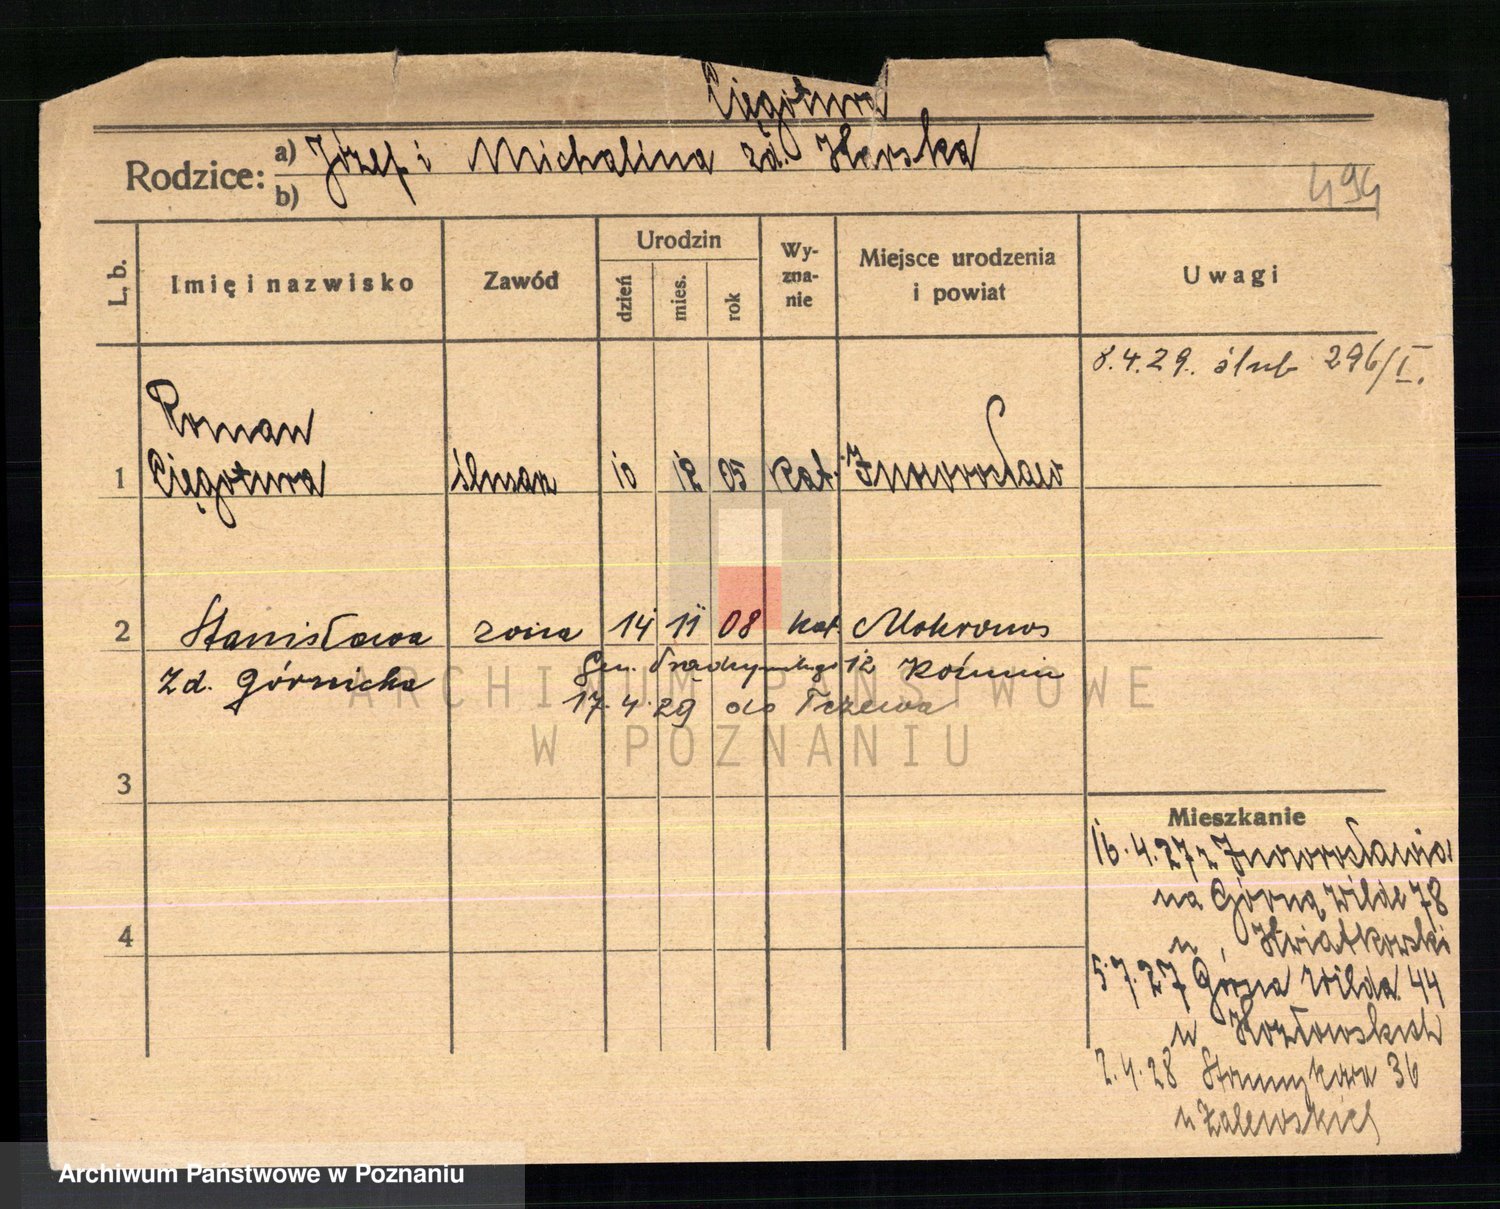 Cięgotura
Rodzice: a) Józef i Michalina zd. Harska
b)
494
L. b.
Imię i nazwisko
Zawód
Urodzin
dzień
mies.
rok
Wy-
zna-
nie
Miejsce urodzenia
i powiat
Uwagi
8.4.29. ślub 296/I.
Roman
1 Cięgotura ślusarz 10 12 05 kat. Inowrocław
2 Stanisława żona 14 11 08 kat Mokronos
zd. Górnicka
Gen. Prądzyńskiego 12 Koźmin
17.4.29 do Tczewa
3
4
Mieszkanie
16.4.27 z Inowrocławia
na Górną Wildę 78
u Kwiatkowski
5.7.27 Górna Wilda 44
u Kozłowskich
2.4.28 36
u Zalewskich
ARCHIWUM PAŃSTWOWE
W POZNANIU
Archiwum Państwowe w Poznaniu